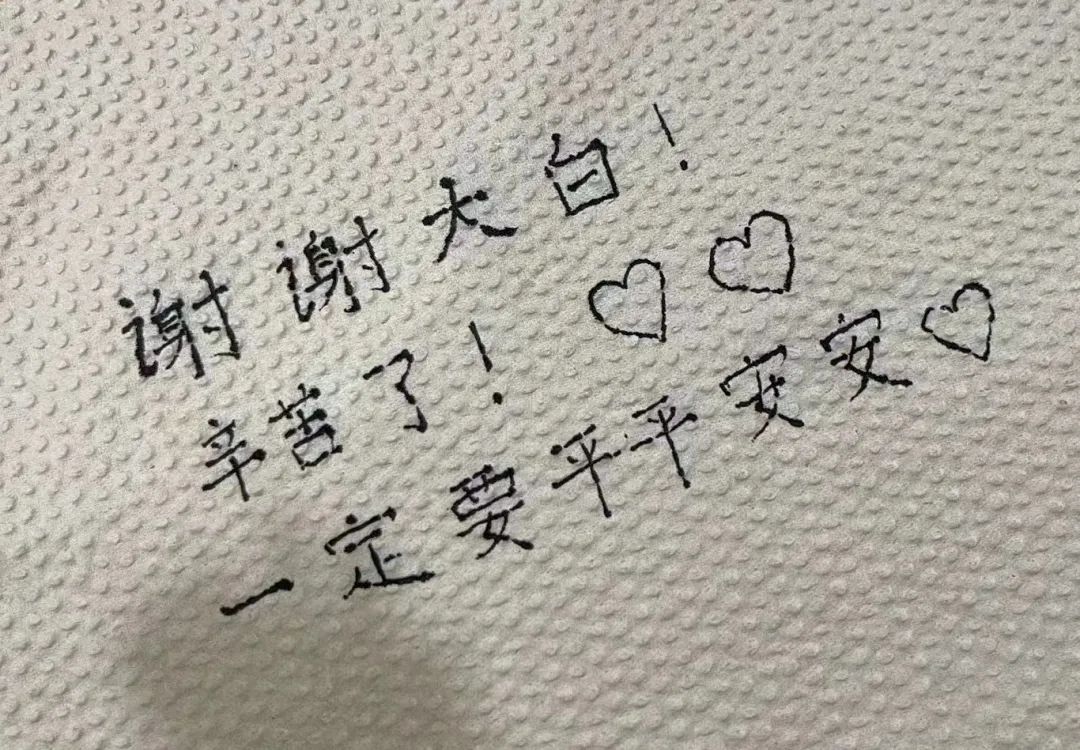 谢谢大白!
辛苦了!
一定要平平安安